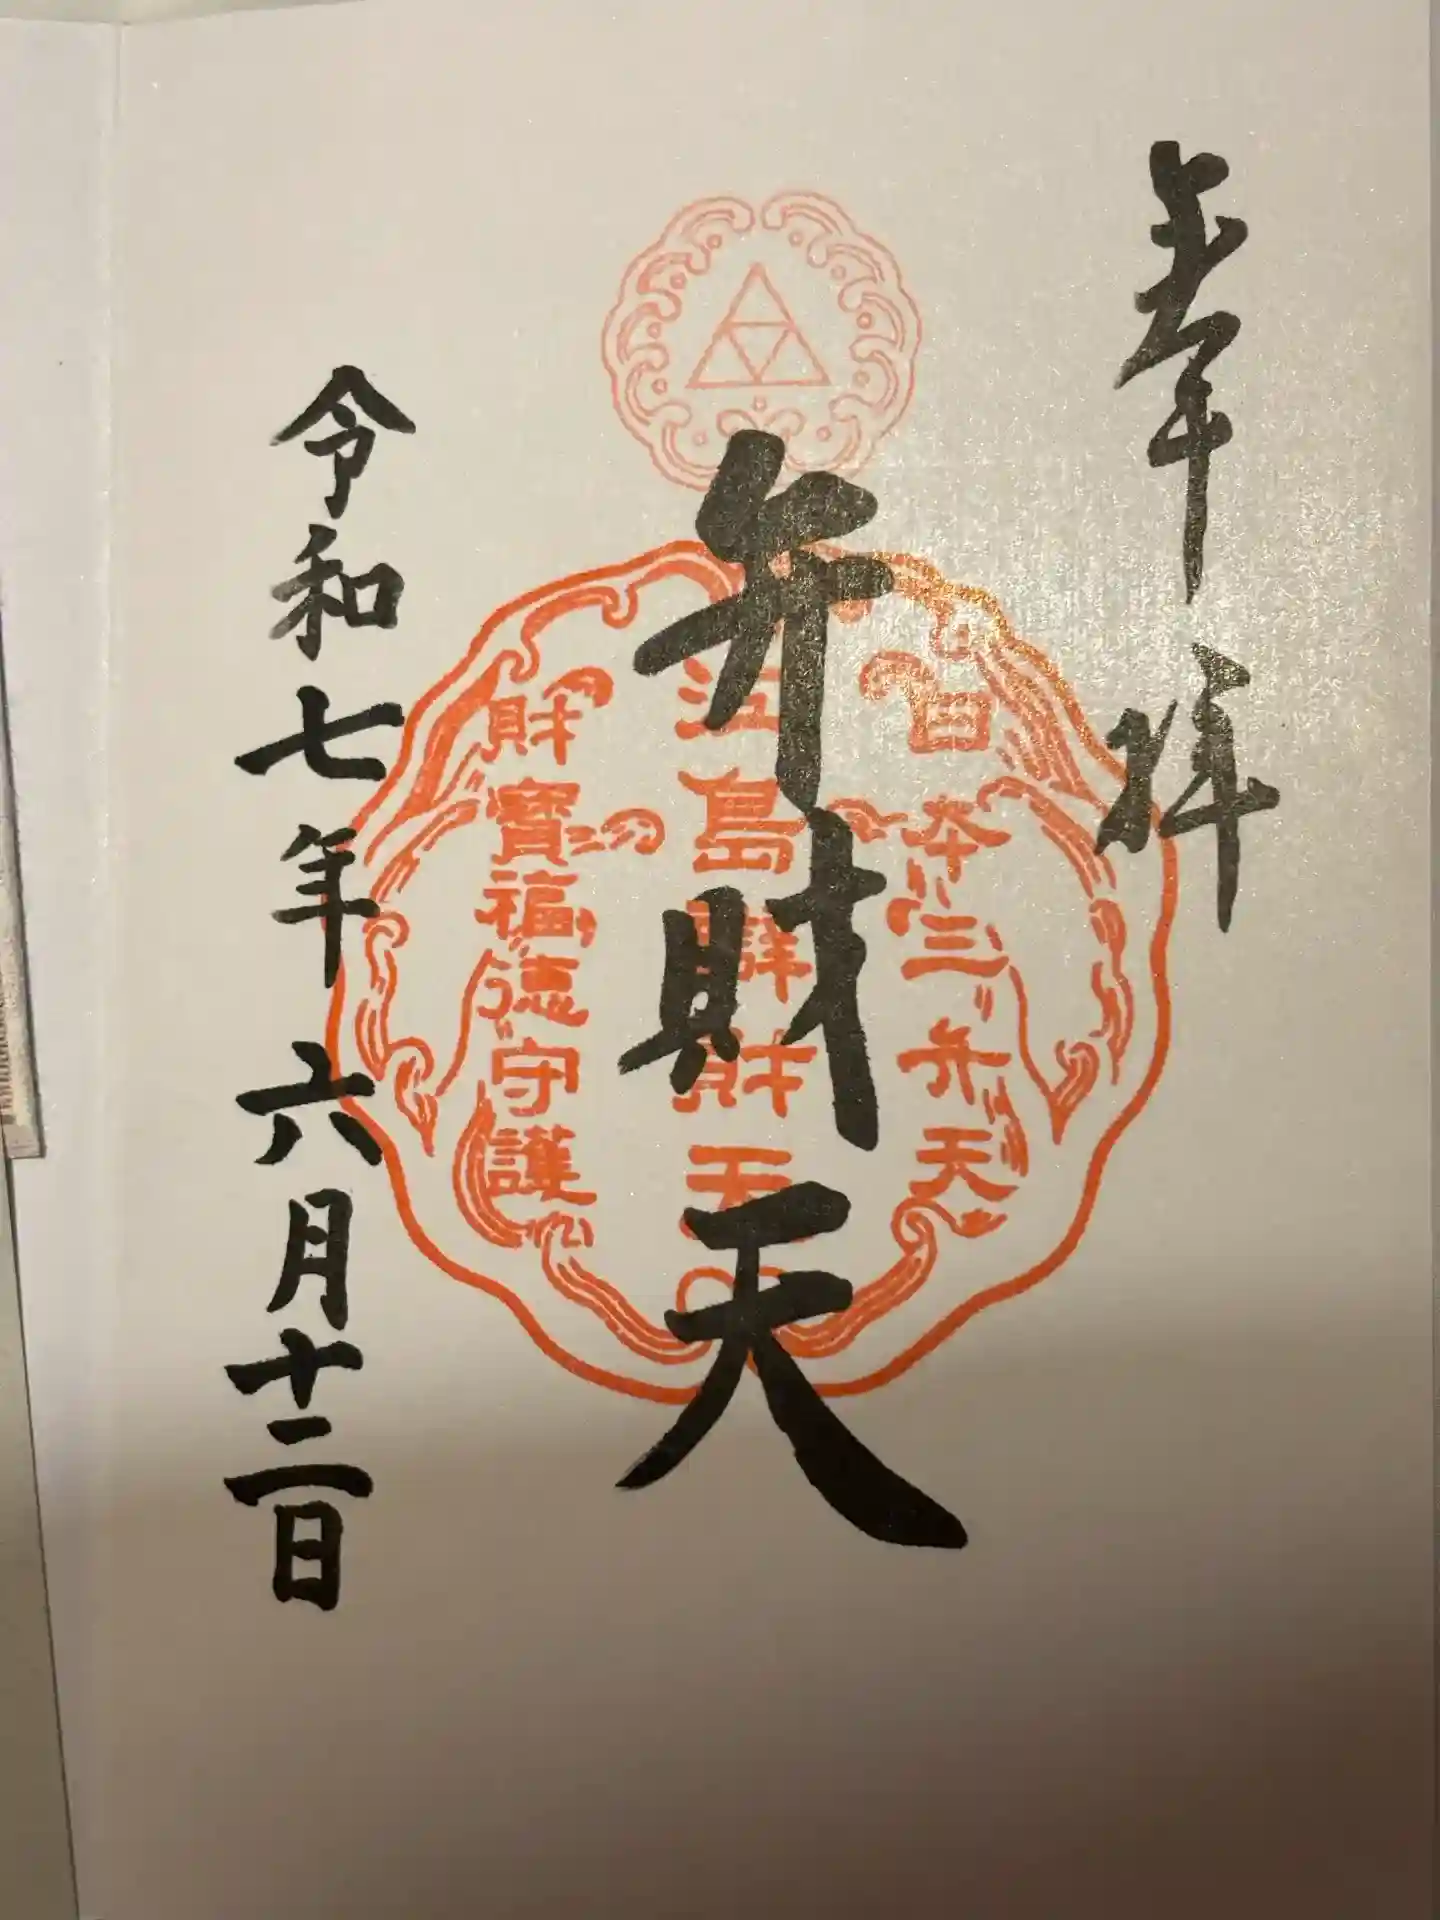 奉拝
日本三弁天
江島辨財天
財寶福徳守護
弁財天
令和七年六月十二日